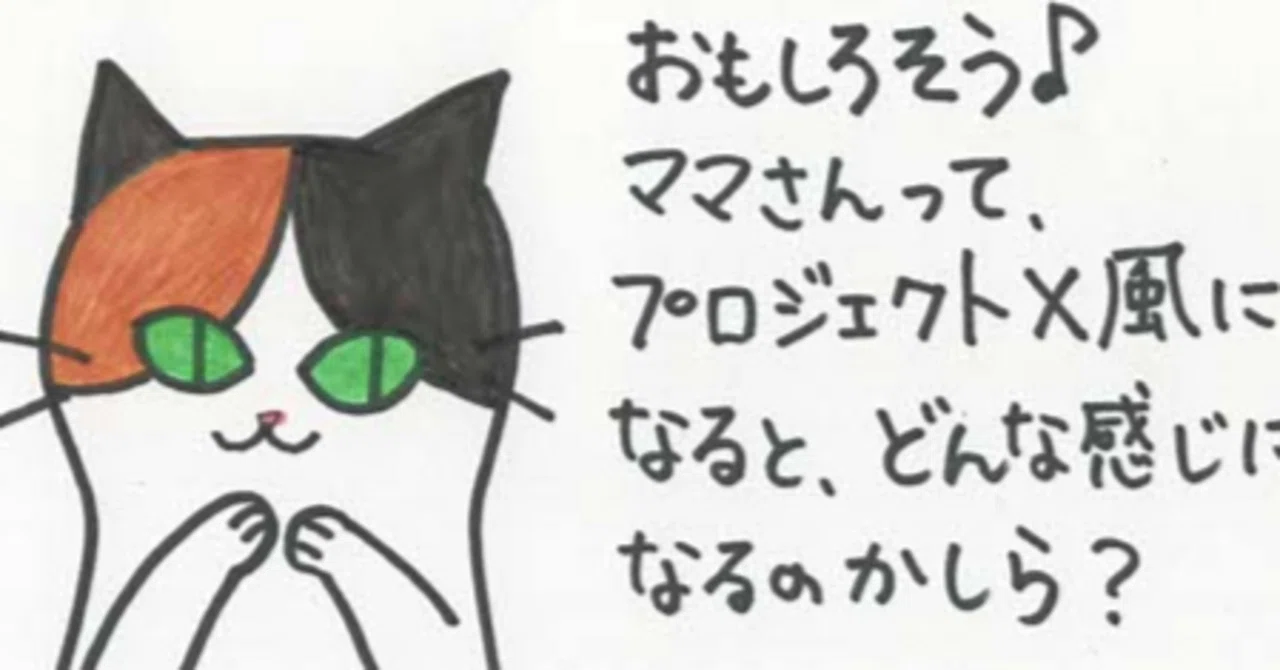 おもしろそう♪
ママさんって、
プロジェクトX風に
なると、どんな感じに
なるのかしら？